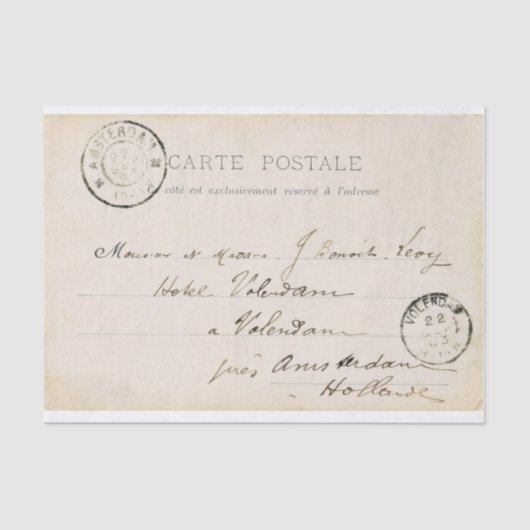 AMSTERDAM
22
CARTE POSTALE
côté est exclusivement réservé à l'adresse
Monsieur et Madame J. Benoit-Levy
Hotel Volendam
a Volendam
près Amsterdam
Hollande
VOLENDAM
22
03